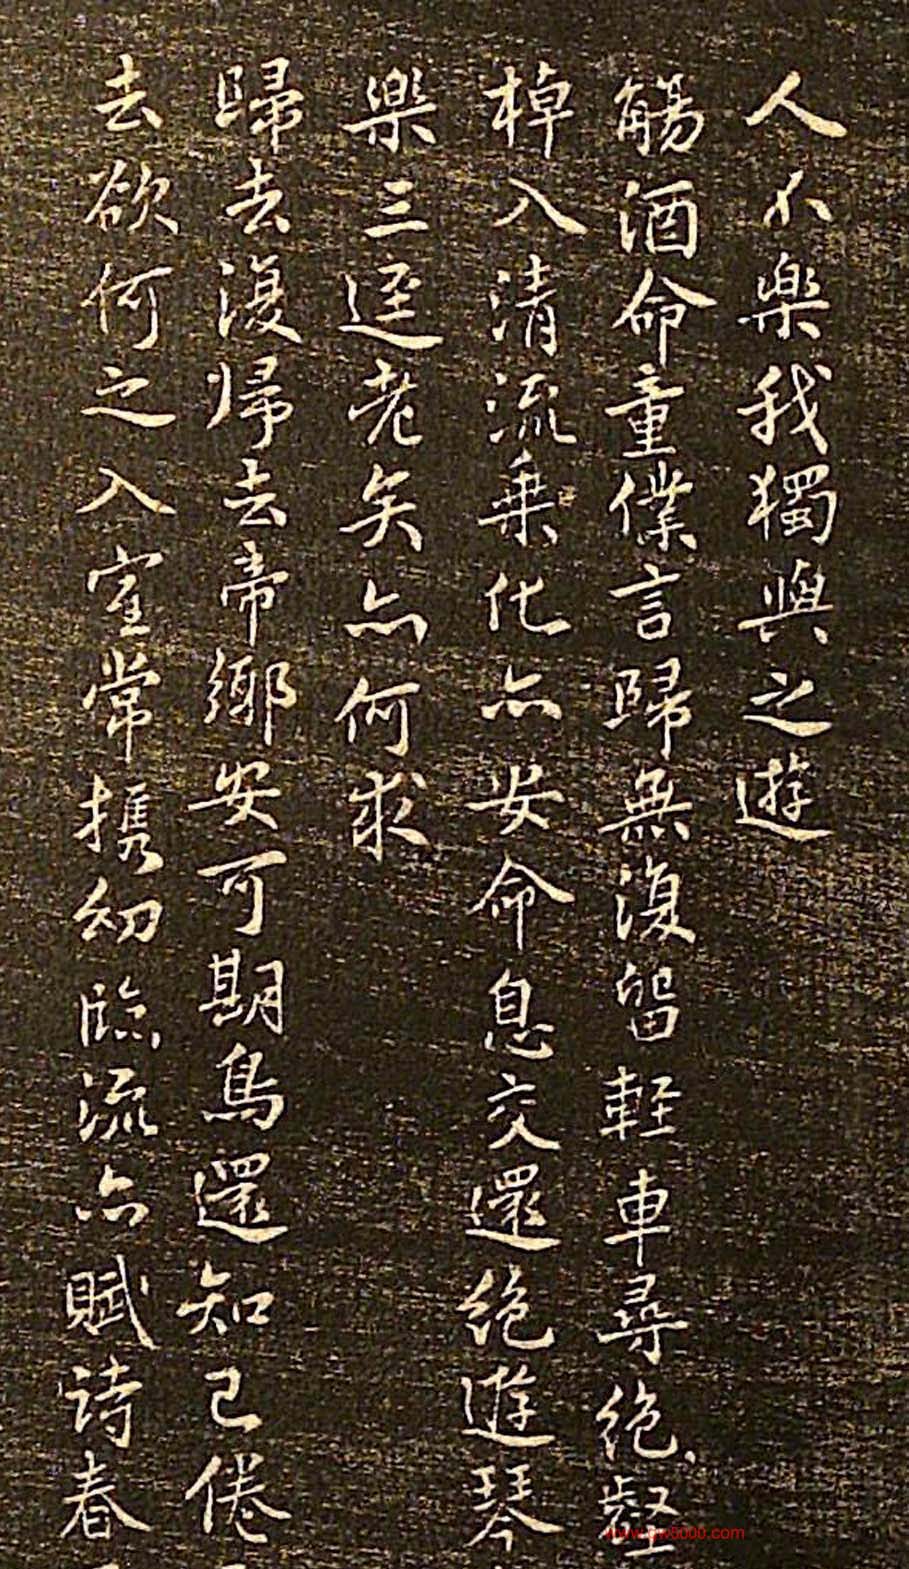 人不樂我獨與之遊
觴酒命童僕言歸無復留軽車尋絶壑
棹入清流乗化亦安命息交還絶遊琴
樂三逕老矣亦何求
歸去復帰去帝鄉安可期鳥還知已倦
去欲何之入室常携幼臨流亦賦诗春
www.cw5000.com